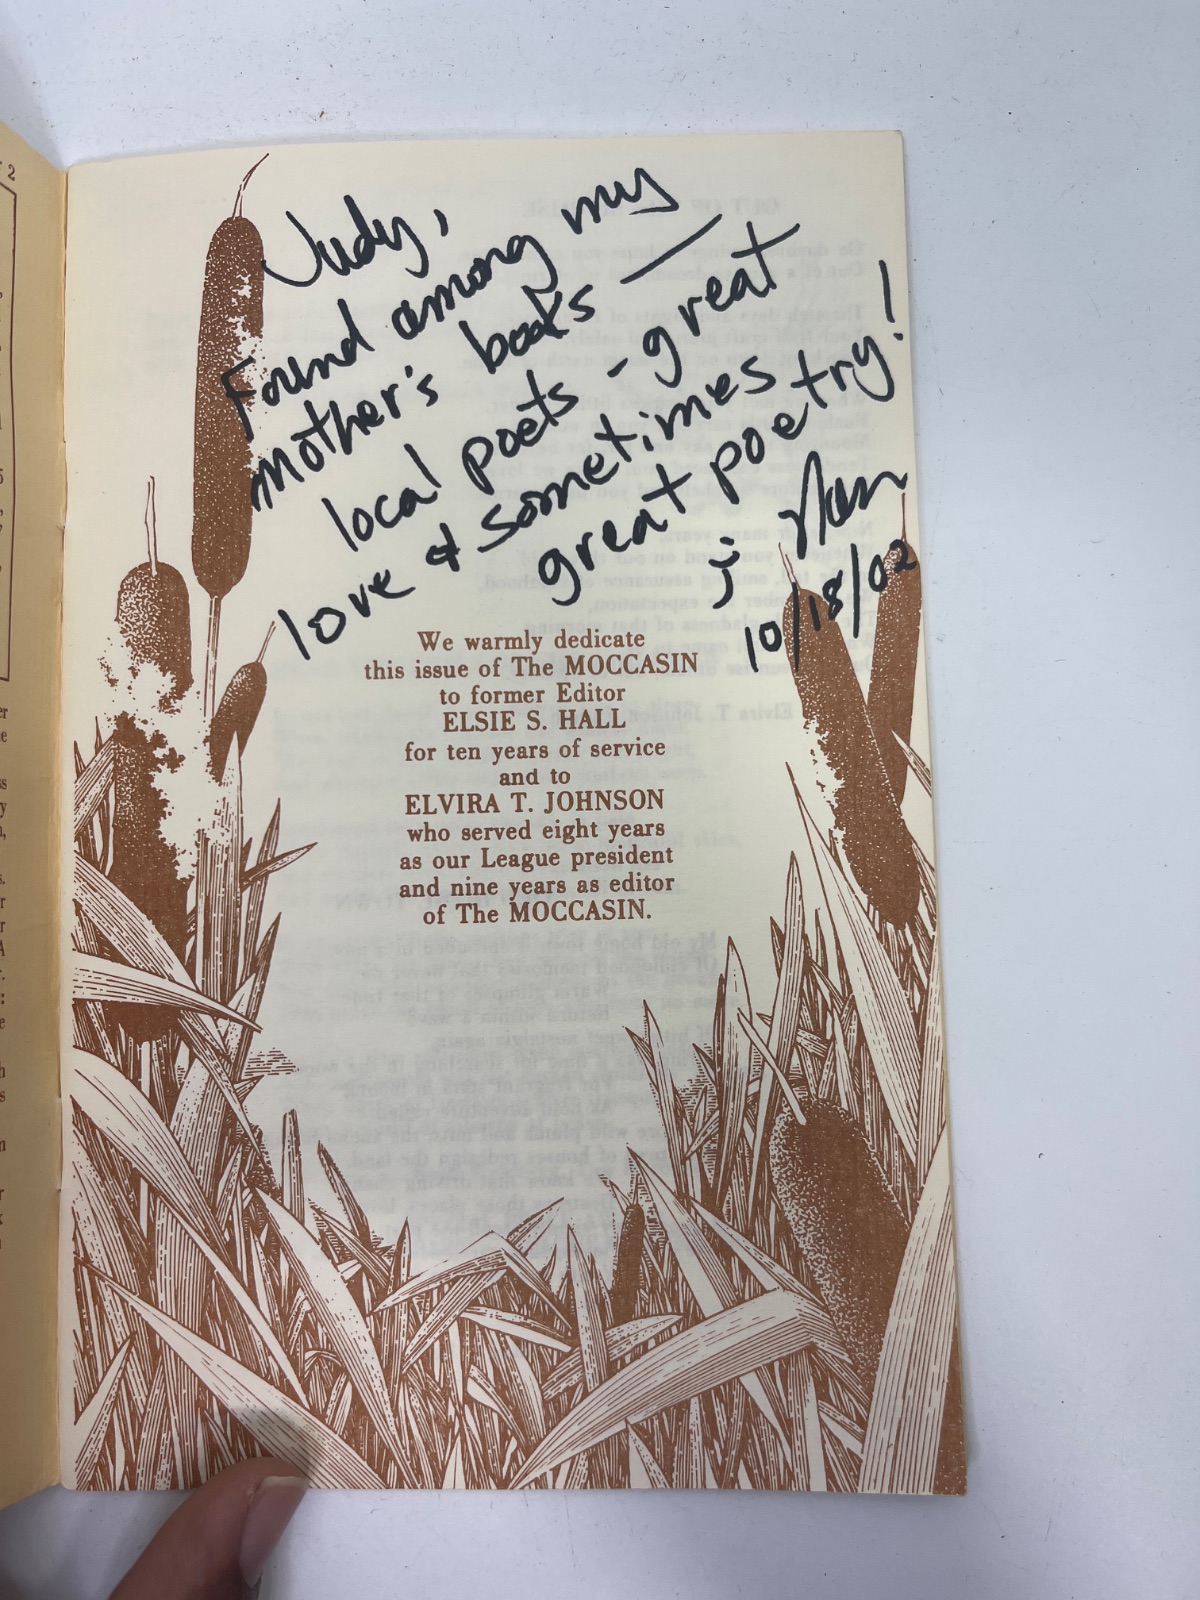 Judy,
Found among my
mother's books —
local poets - great
love & sometimes
great poetry!
j Nan
10/18/02
We warmly dedicate
this issue of The MOCCASIN
to former Editor
ELSIE S. HALL
for ten years of service
and to
ELVIRA T. JOHNSON
who served eight years
as our League president
and nine years as editor
of The MOCCASIN.